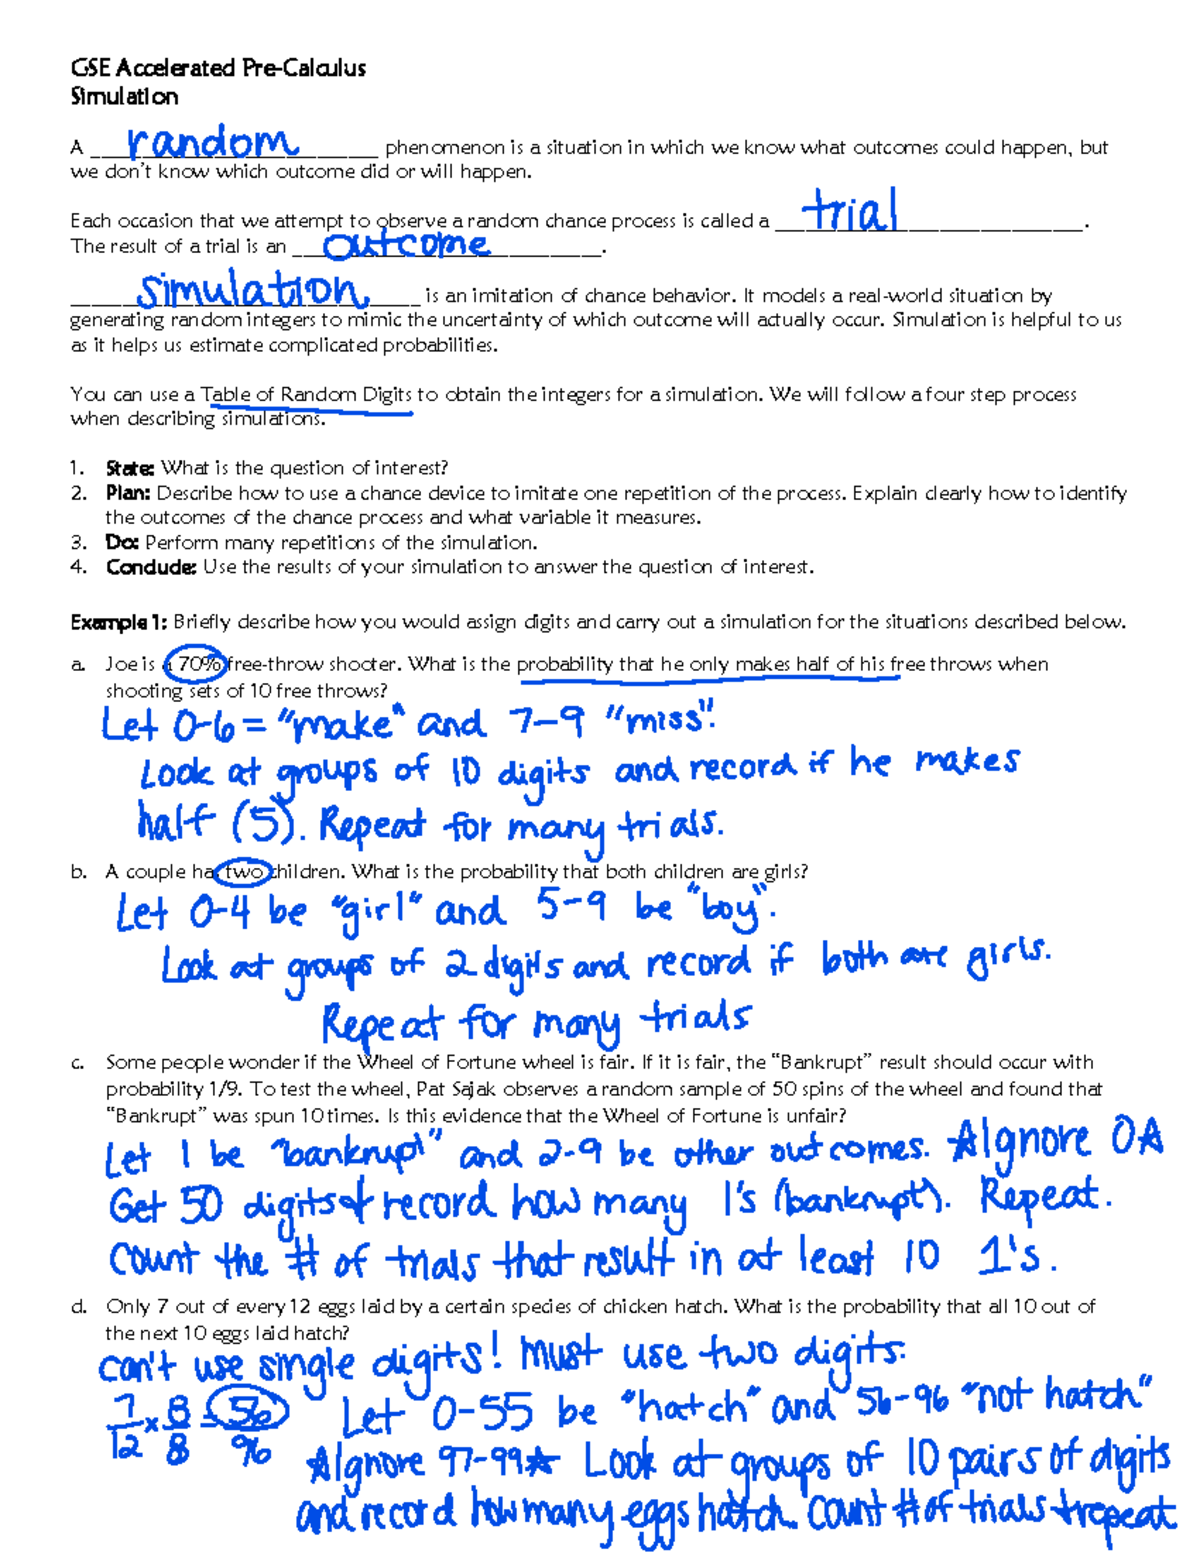 GSE Accelerated Pre-Calculus
Simulation
A random phenomenon is a situation in which we know what outcomes could happen, but
we don't know which outcome did or will happen.
Each occasion that we attempt to observe a random chance process is called a trial.
The result of a trial is an outcome.
simulation is an imitation of chance behavior. It models a real-world situation by
generating random integers to mimic the uncertainty of which outcome will actually occur. Simulation is helpful to us
as it helps us estimate complicated probabilities.
You can use a Table of Random Digits to obtain the integers for a simulation. We will follow a four step process
when describing simulations.
1. State: What is the question of interest?
2. Plan: Describe how to use a chance device to imitate one repetition of the process. Explain clearly how to identify
the outcomes of the chance process and what variable it measures.
3. Do: Perform many repetitions of the simulation.
4. Conclude: Use the results of your simulation to answer the question of interest.
Example 1: Briefly describe how you would assign digits and carry out a simulation for the situations described below.
a. Joe is a 70% free-throw shooter. What is the probability that he only makes half of his free throws when
shooting sets of 10 free throws?
Let 0-6 = "make" and 7-9 "miss".
Look at groups of 10 digits and record if he makes
half (5). Repeat for many trials.
b. A couple has two children. What is the probability that both children are girls?
Let 0-4 be "girl" and 5-9 be "boy".
Look at groups of 2 digits and record if both are girls.
Repeat for many trials
c. Some people wonder if the Wheel of Fortune wheel is fair. If it is fair, the "Bankrupt" result should occur with
probability 1/9. To test the wheel, Pat Sajak observes a random sample of 50 spins of the wheel and found that
"Bankrupt" was spun 10 times. Is this evidence that the Wheel of Fortune is unfair?
Let 1 be "bankrupt" and 2-9 be other outcomes. ☆Ignore 0☆
Get 50 digits & record how many 1's (bankrupt). Repeat.
Count the # of trials that result in at least 10 1's.
d. Only 7 out of every 12 eggs laid by a certain species of chicken hatch. What is the probability that all 10 out of
the next 10 eggs laid hatch?
can't use single digits! Must use two digits.
7/12 × 8/8 = 56/96 Let 0-55 be "hatch" and 56-96 "not hatch"
☆Ignore 97-99☆ Look at groups of 10 pairs of digits
and record how many eggs hatch. Count # of trials + repeat